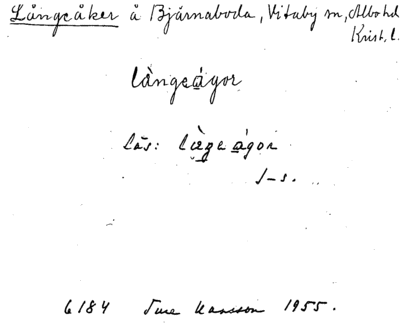 Långeåker å Bjärnaboda, Vitaby sn, Albo hd
Krist. l.
làngeágor
läs: làgeágor
J-s.
6184 Ture Hansson 1955.